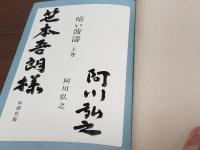 芝本吾朗様
暗い波濤
上巻
阿川弘之
新潮社版
阿川弘之